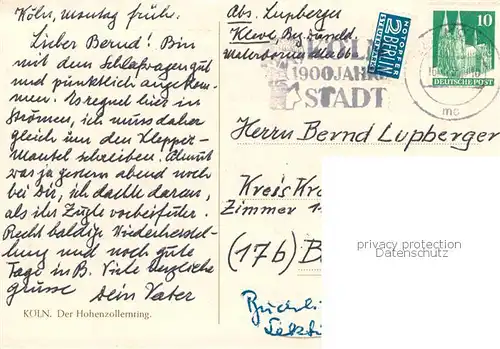 Köln, Montag früh.
Lieber Bernd! Bin
mit dem Schlafwagen gut
und pünktlich angekom-
men. Es regnet hier in
Strömen, ich muss daher
gleich um den Klepper-
Mantel schreiben. Amut
war ja gestern abend noch
bei Dir, ich dachte daran,
als ihr Zügle vorbeifuhr.
Recht baldige Wiederherstel-
lung und noch gute
Tage in B. Viele herzliche
grüsse Dein Vater
KÖLN. Der Hohenzollernring.
Abs. Lupberger
Kleve, Bez. Düsseld.
KÖLN
1900 JAHRE
STADT
NOTOPFER
2 BERLIN
STEUERMARKE
10
DEUTSCHE POST
mc
Herrn Bernd Lupberger
Kreis Kra
Zimmer 1
(17b) B
privacy protection
Datenschutz